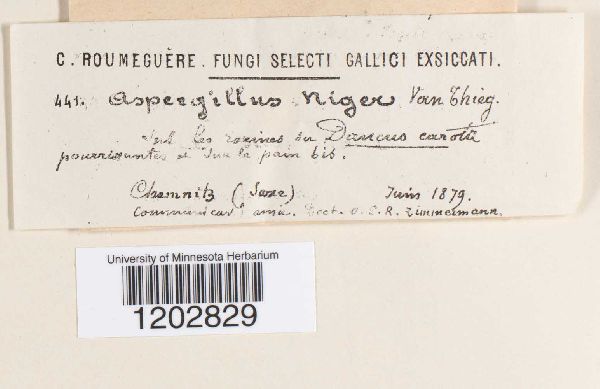 C. ROUMEGUÈRE. FUNGI SELECTI GALLICI EXSICCATI.
441. Aspergillus Niger Van Thieg.
Sur les racines du Daucus carota
pourrissantes et sur le pain bis.
Chemnitz (Saxe) Juin 1879.
Communicav. amic. Doct. O. E. R. Zimmermann.
University of Minnesota Herbarium
1202829